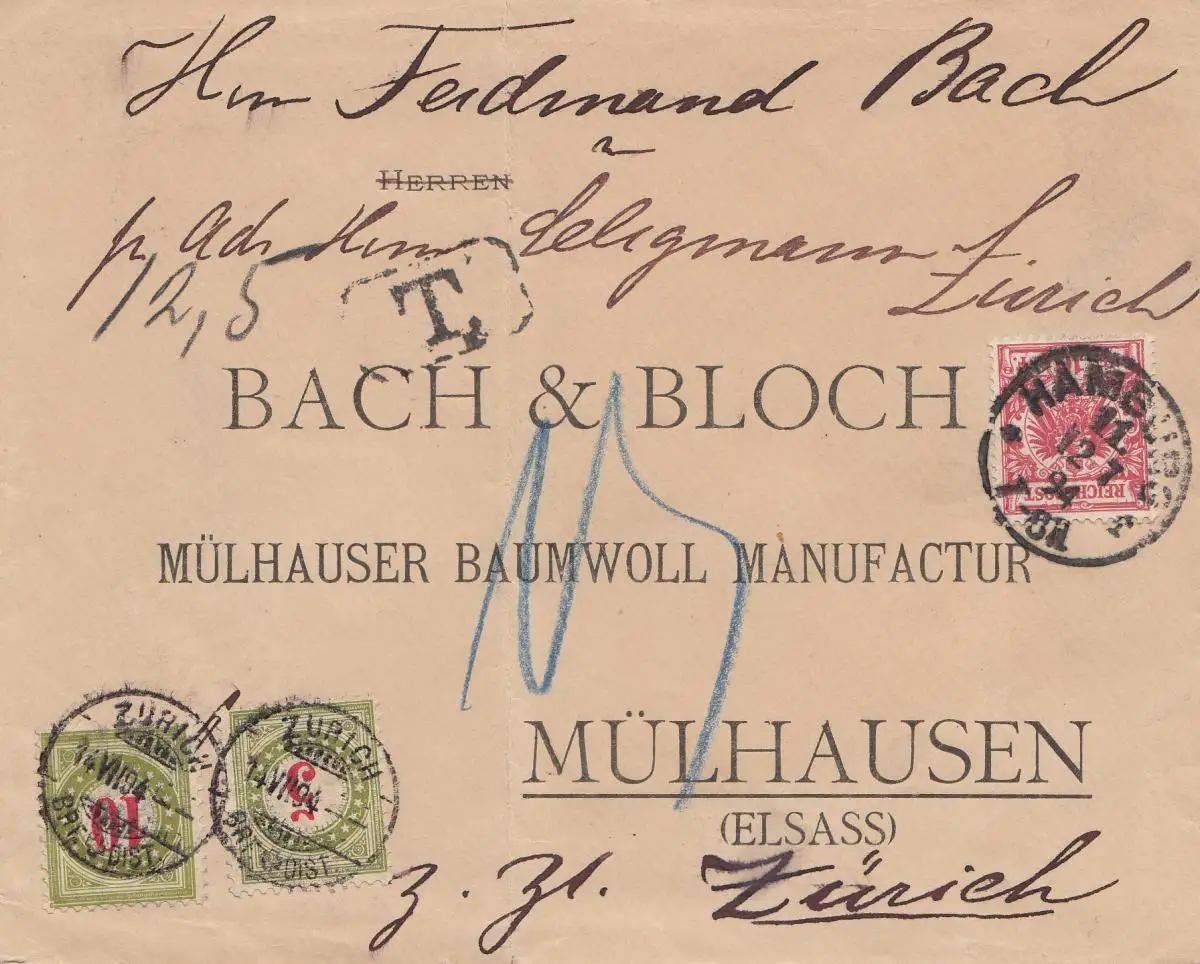 Hrn Ferdinand Bach
HERREN
p. Adr. Herrn Seligmann
Zürich
12,5
T.
BACH & BLOCH
MÜLHAUSER BAUMWOLL MANUFACTUR
MÜLHAUSEN
(ELSASS)
z. Zt. Zürich
15
HAMBURG
12 7
94
REICHSPOST
10
ZÜRICH
14.VII.94
BRF. DIST.
5
ZÜRICH
14.VII.94
BRIEF DIST.